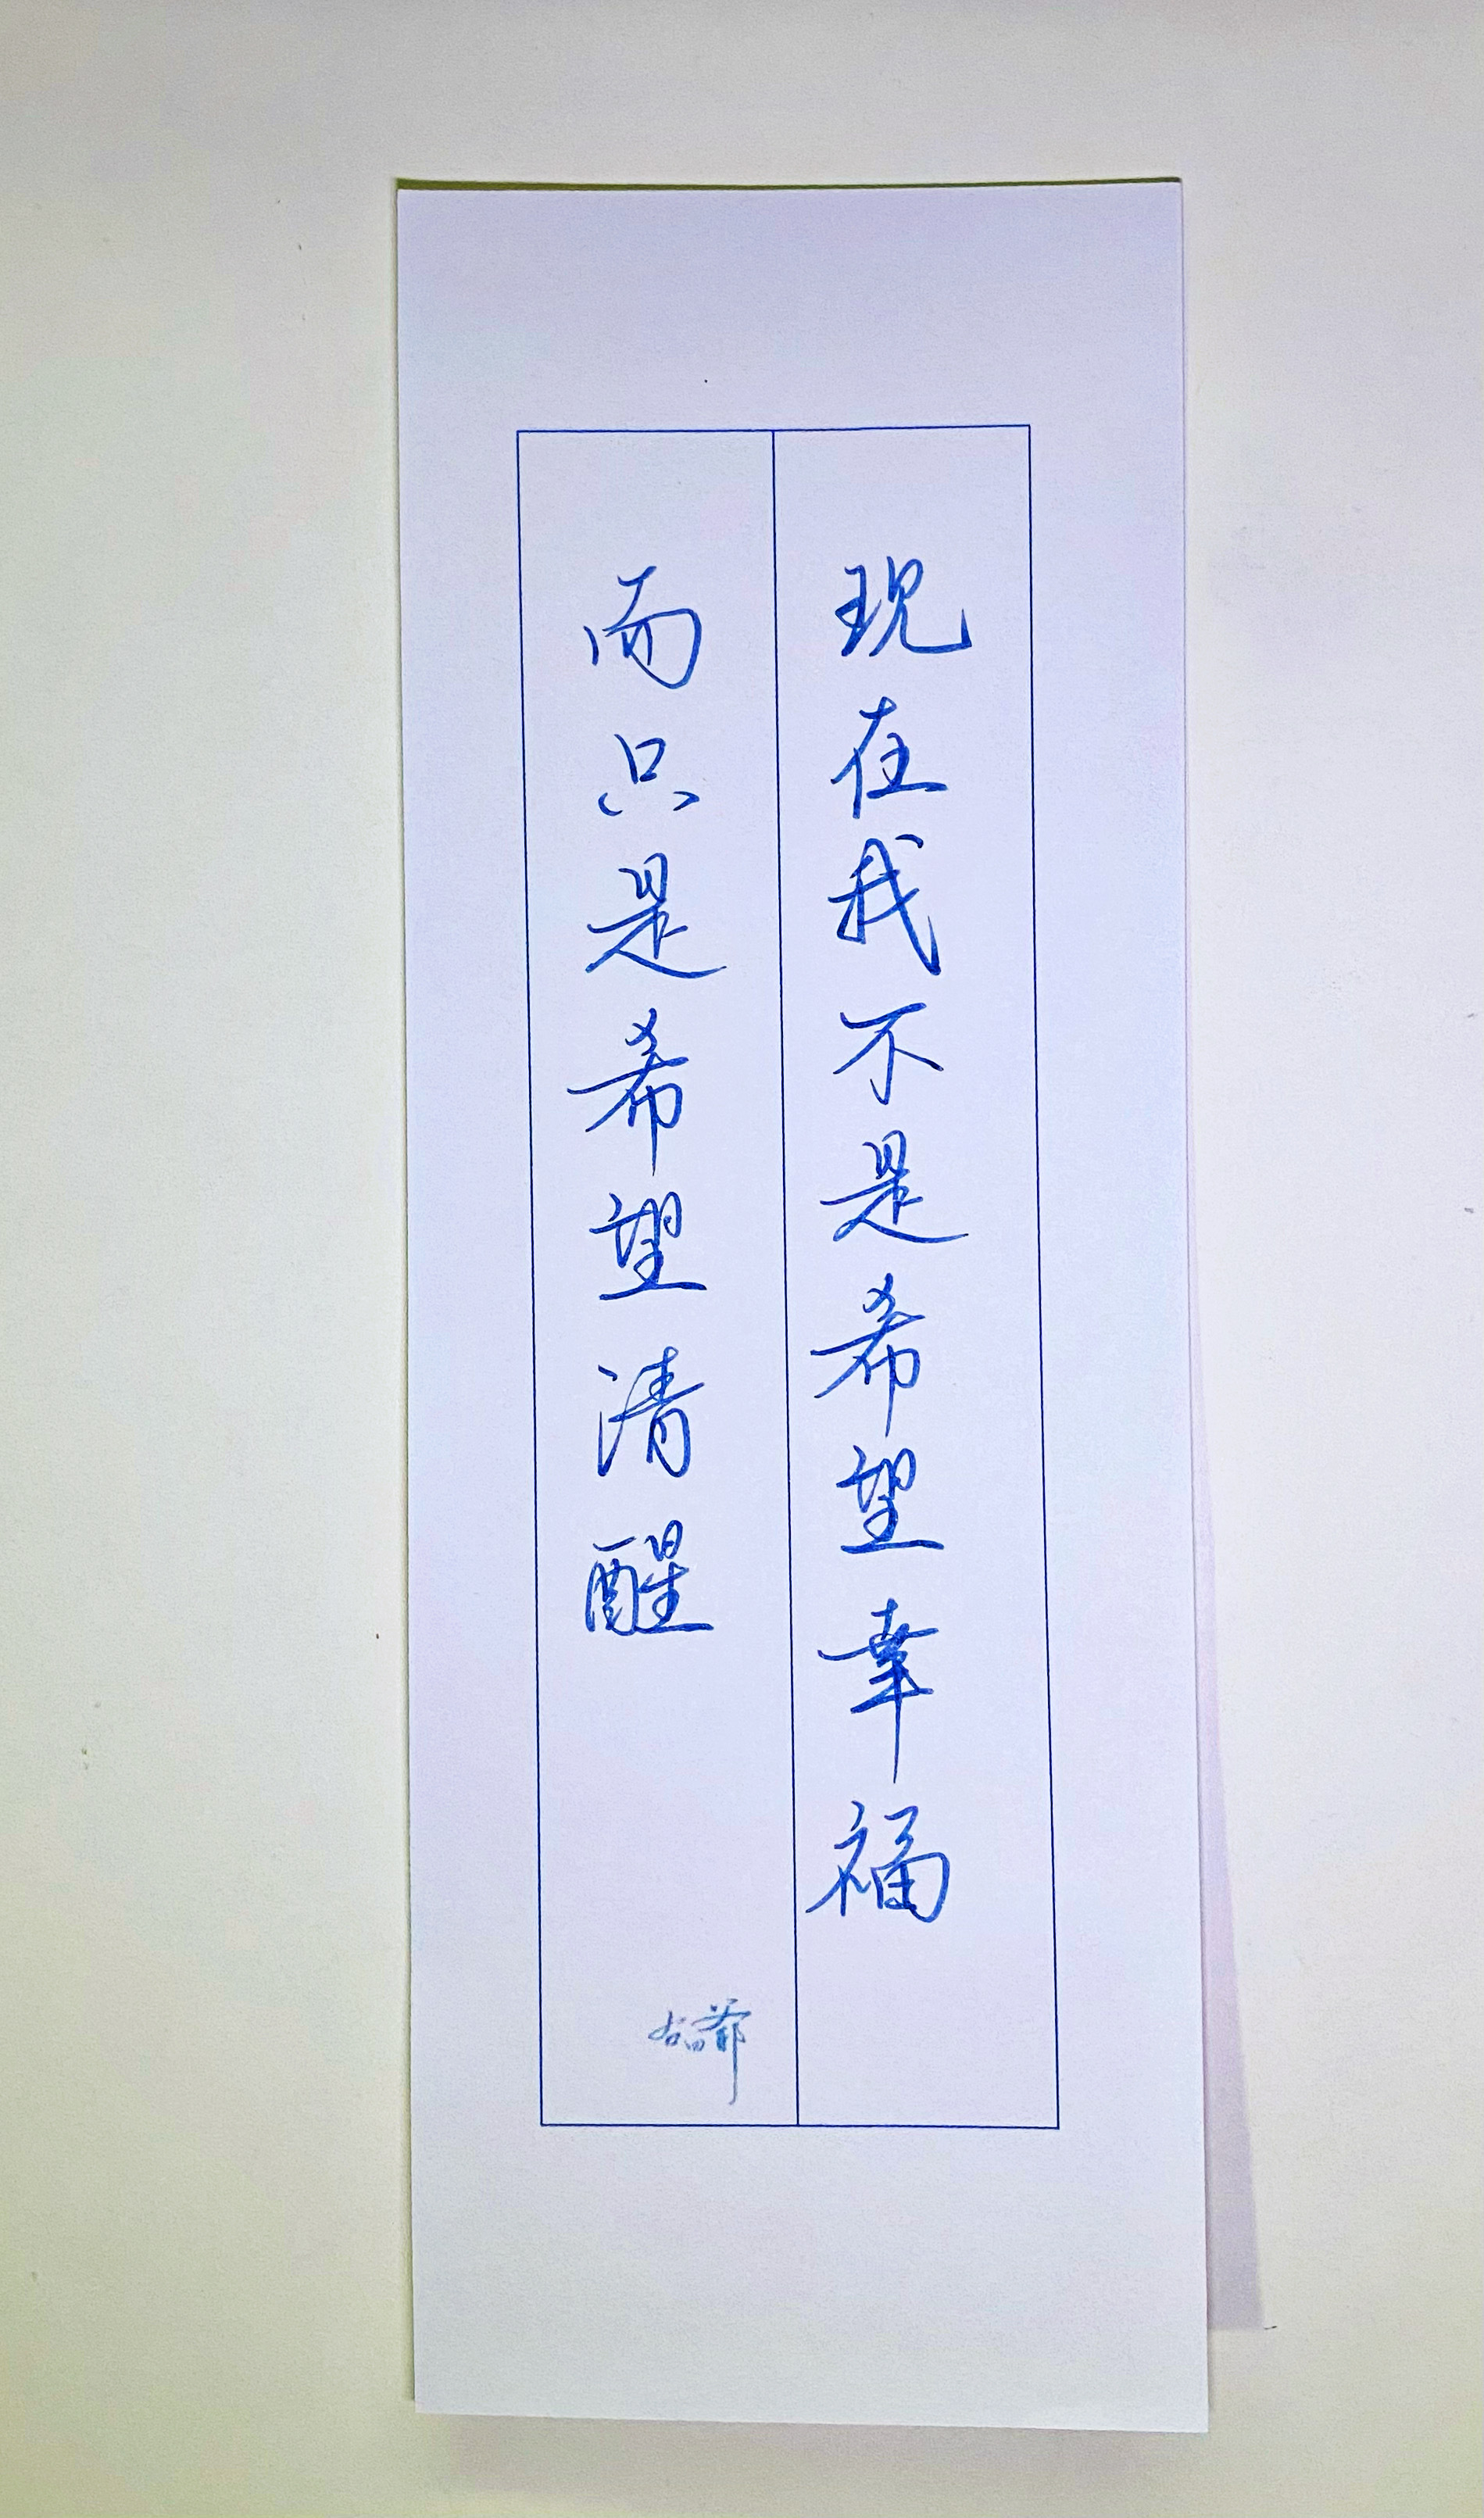 现在我不是希望幸福
而只是希望清醒